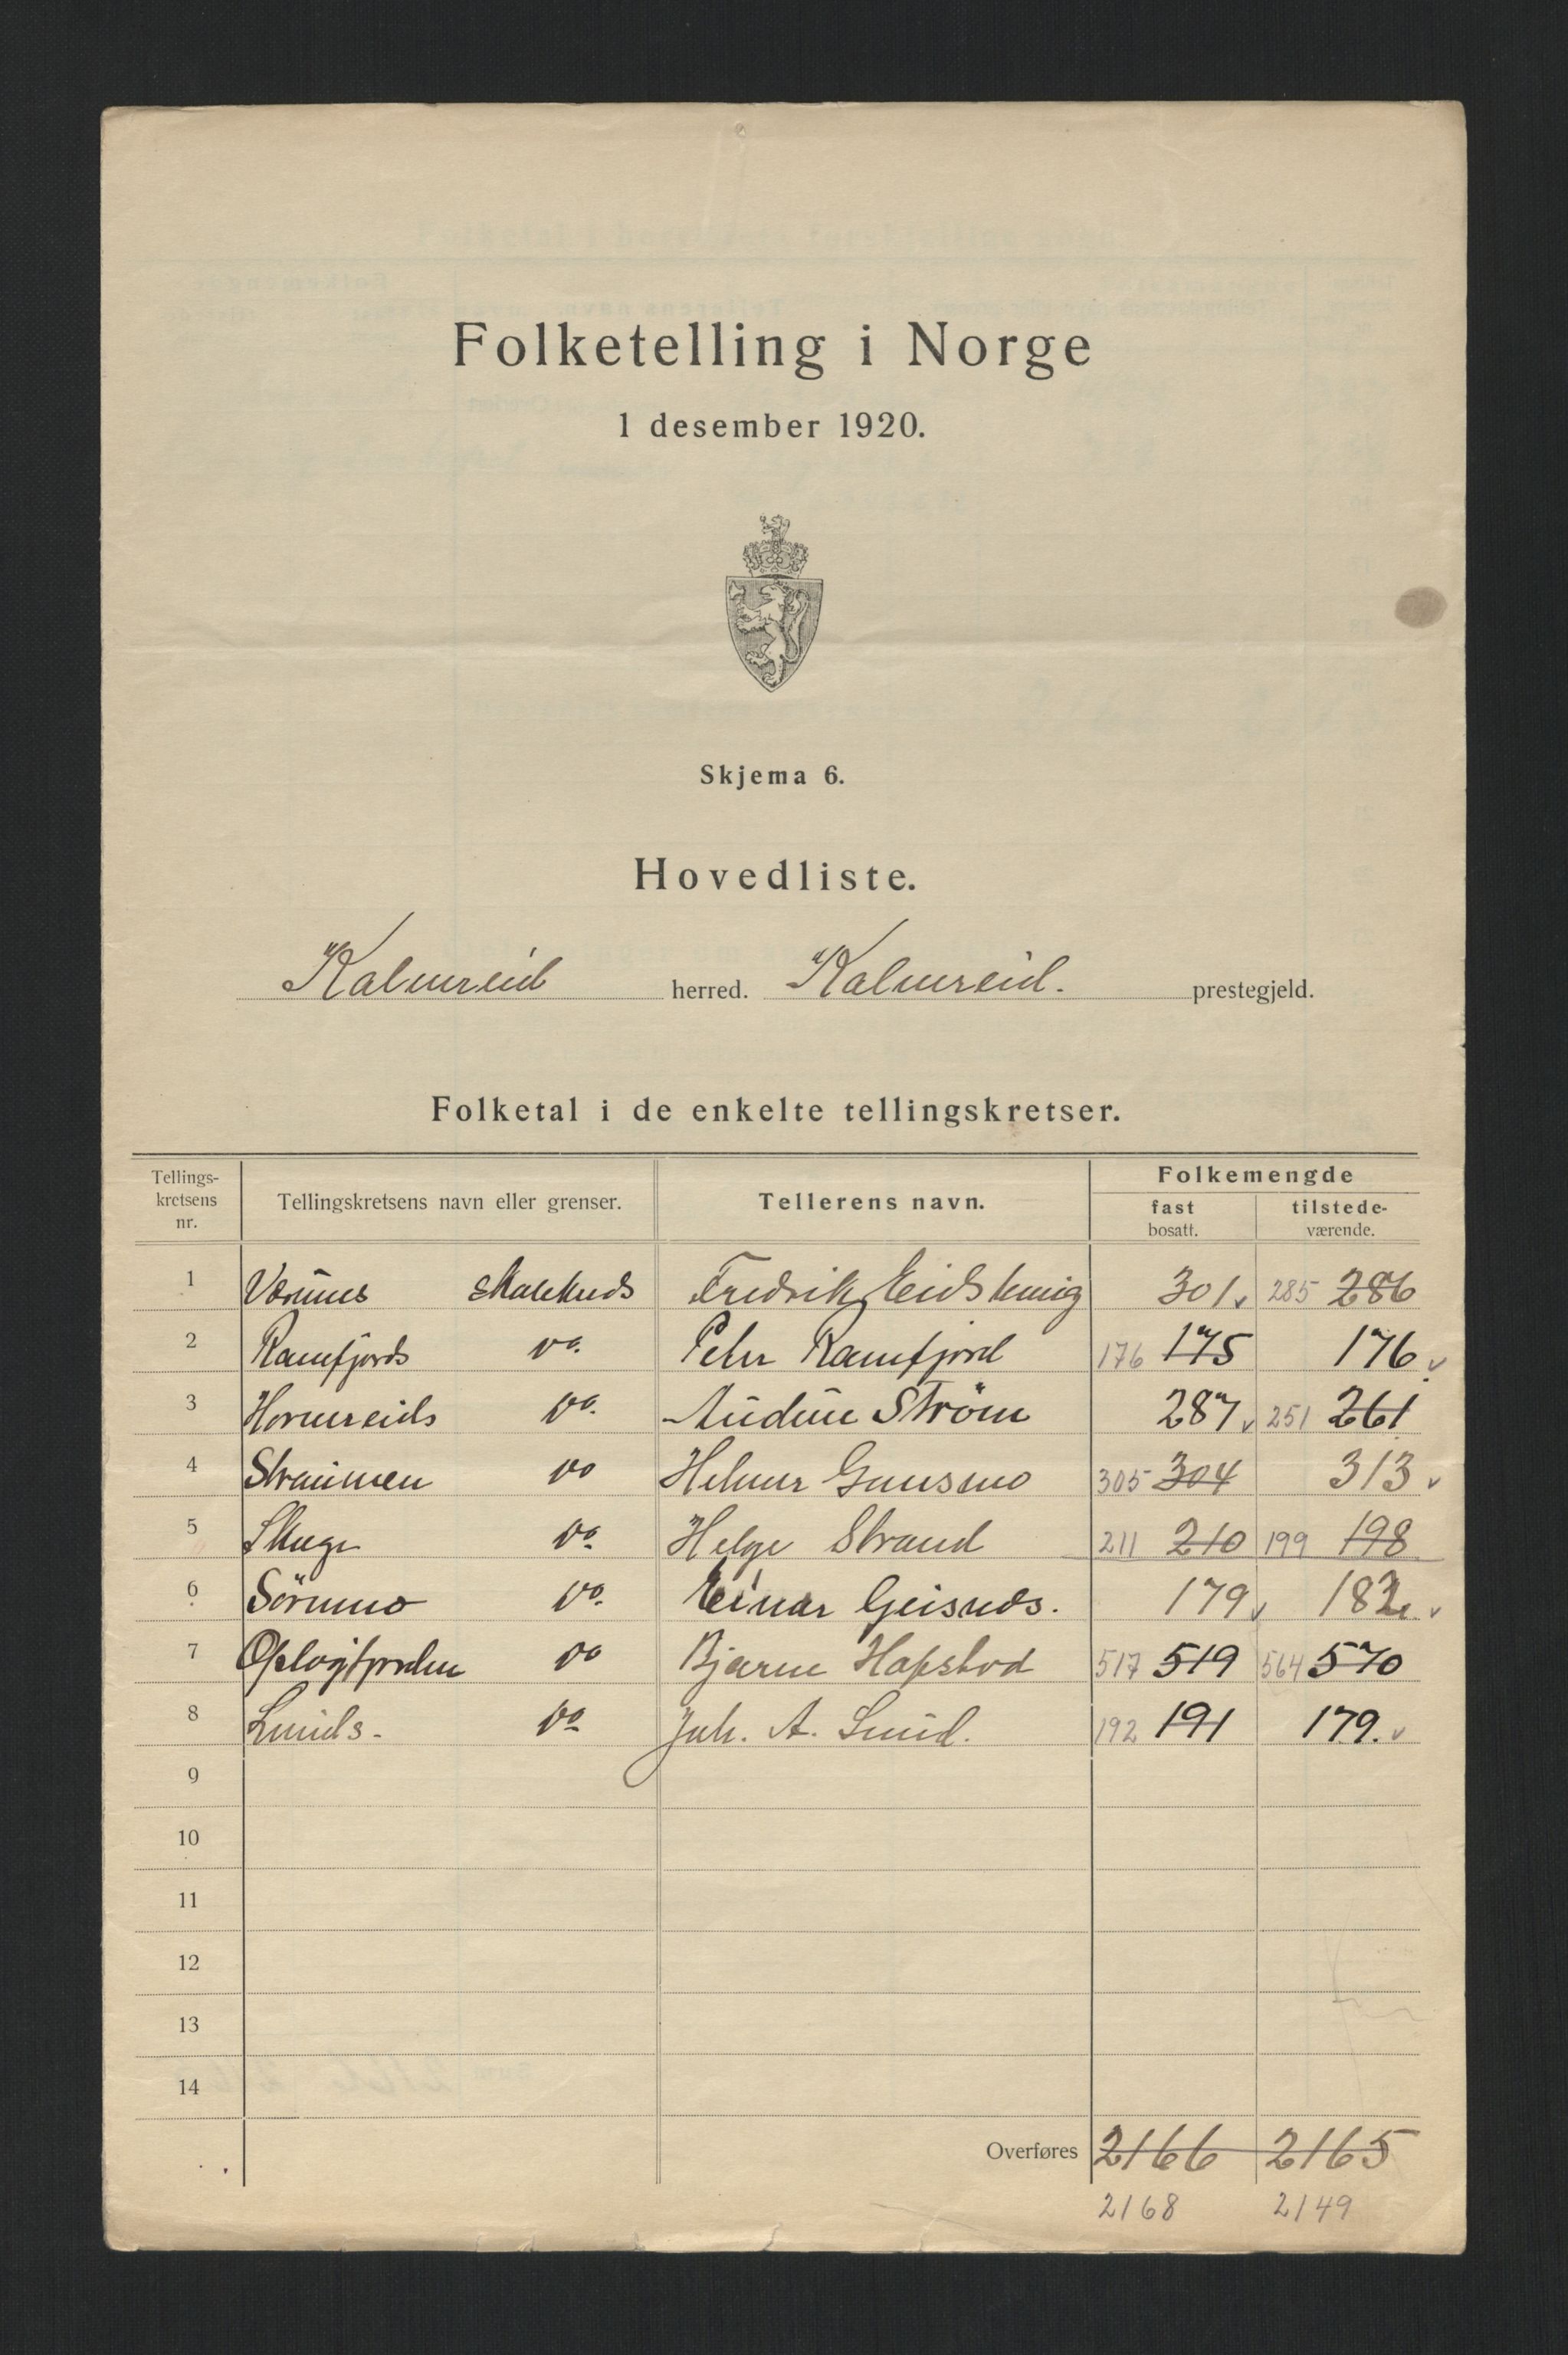 Folketelling i Norge
1 desember 1920.
Skjema 6.
Hovedliste.
Kolvereid herred. Kolvereid. prestegjeld.
Folketal i de enkelte tellingskretser.
Tellings-kretsens nr. Tellingskretsens navn eller grenser. Tellerens navn. Folkemengde
fast bosatt. tilstede-værende.
1 Værums skolekreds Fredrik Eidshaug 301 285 286
2 Ramfjords do. Peter Ramfjord 176 175 176
3 Horvereids do. Audun Ström 287 251 261
4 Straumen do Helmer Gansmo 305 304 313
5 Skage do Helge Strand 211 210 199 198
6 Sörumo do. Einar Geisnes. 179 182
7 Oplöyfjorden do Bjarne Hapstad 517 519 564 570
8 Lunds- do Joh. A. Lund. 192 191 179.
9
10
11
12
13
14
Overføres 2166 2165
2168 2149